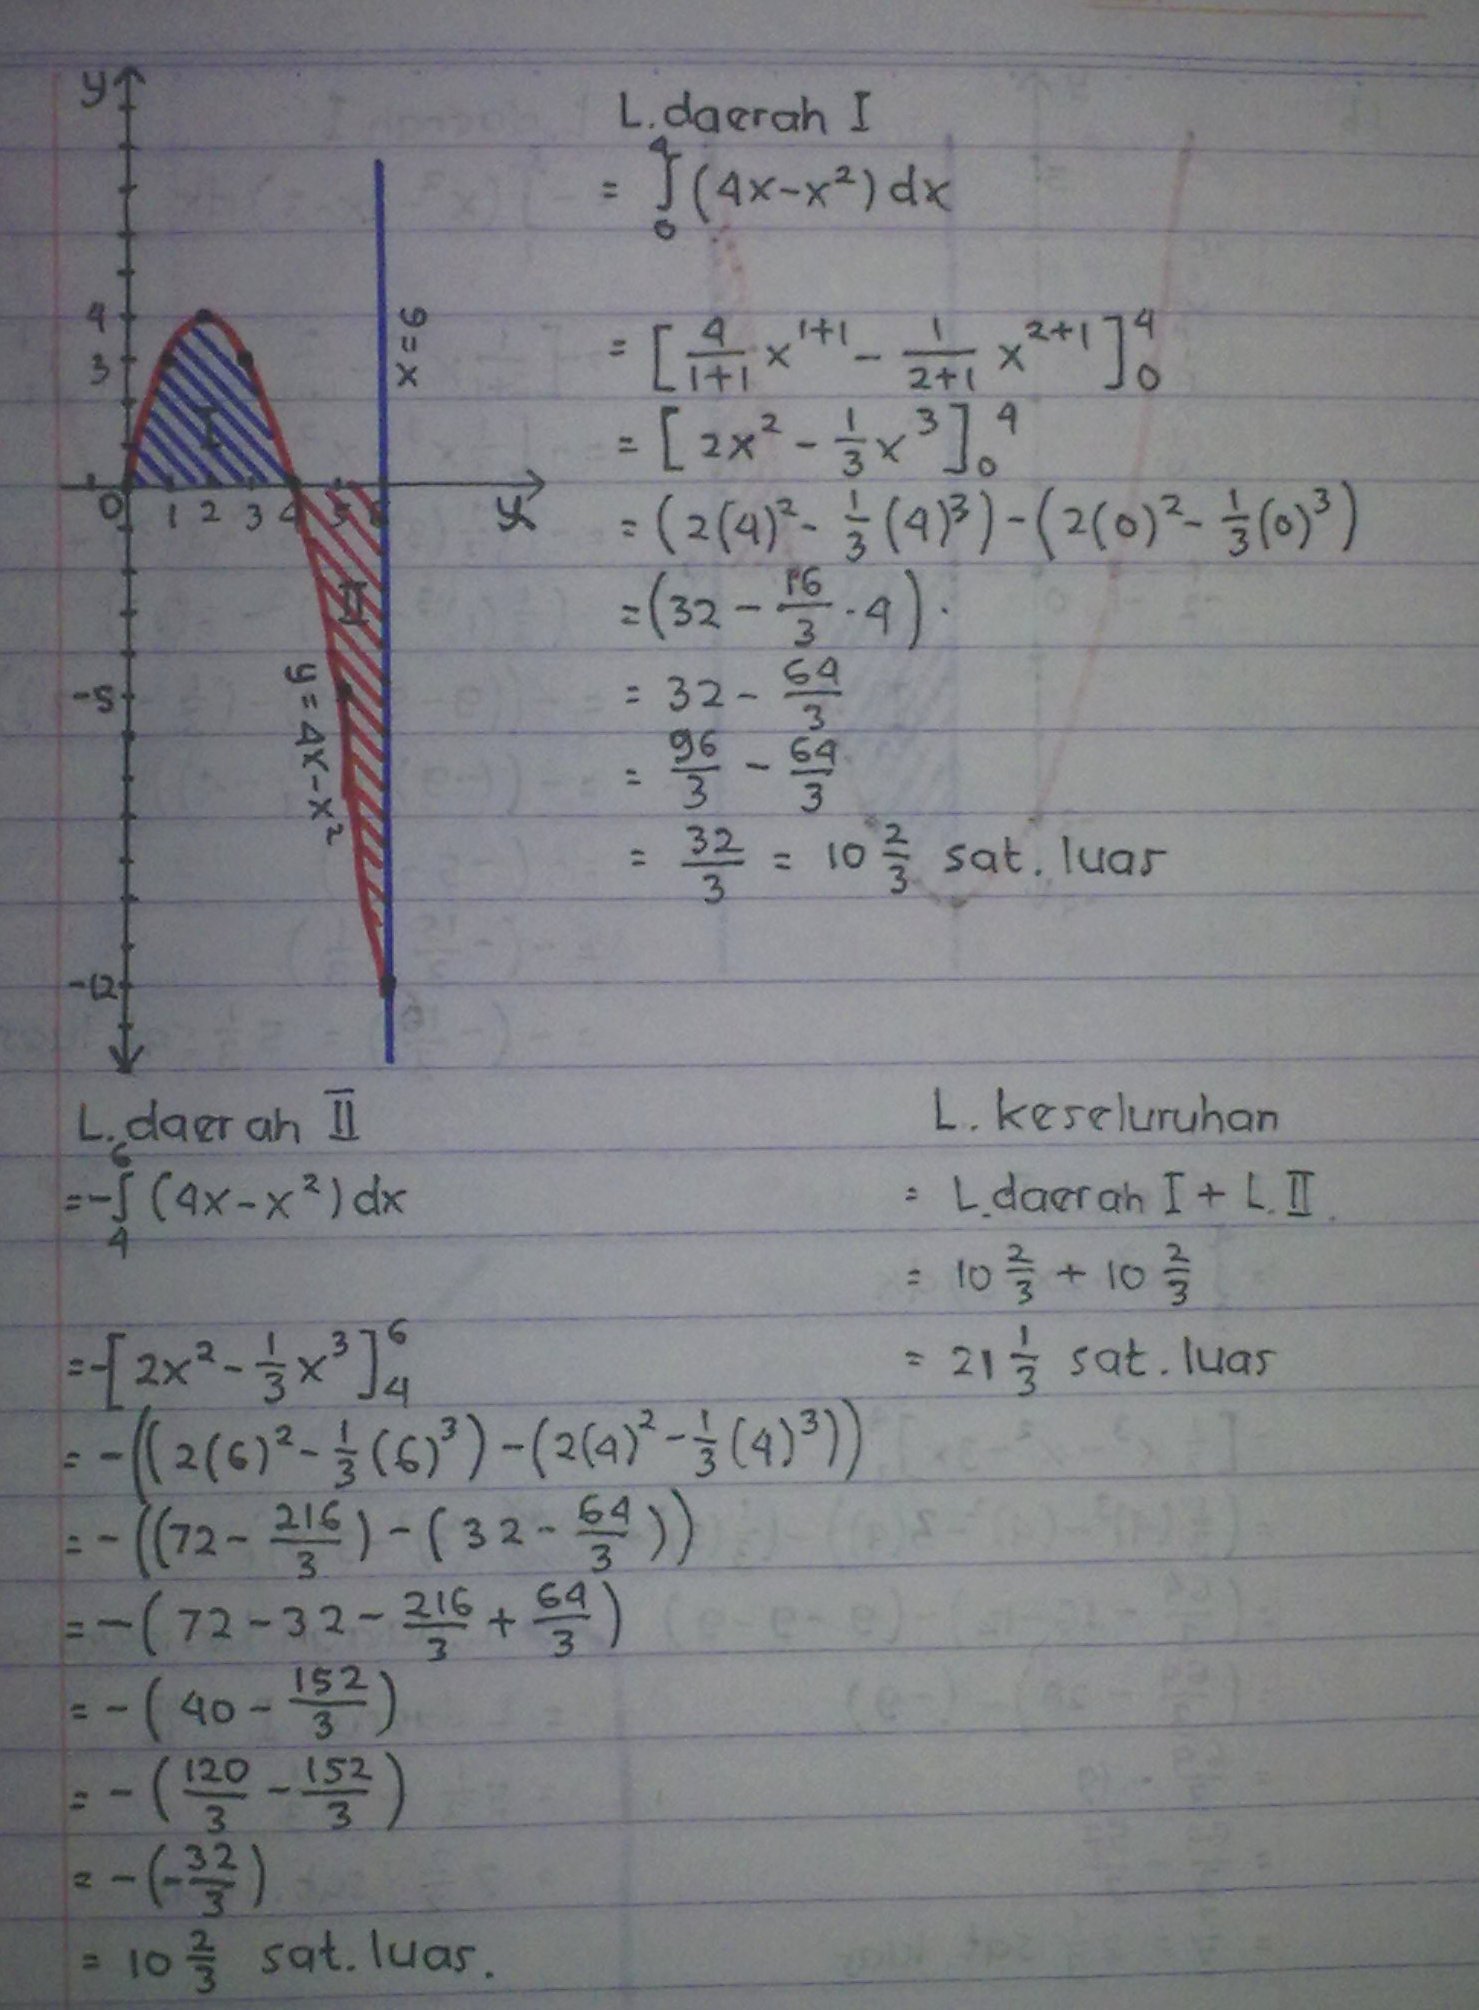 y
4
3
0 1 2 3 4 5 6
I
II
-5
-12
x = 6
y = 4x - x²
L. daerah I
= ∫₀⁴ (4x - x²) dx
= [4/(1+1) x¹⁺¹ - 1/(2+1) x²⁺¹]₀⁴
= [2x² - 1/3 x³]₀⁴
= (2(4)² - 1/3 (4)³) - (2(0)² - 1/3 (0)³)
= (32 - 16/3 · 4)
= 32 - 64/3
= 96/3 - 64/3
= 32/3 = 10 2/3 sat. luas
L. daerah II
= -∫₄⁶ (4x - x²) dx
= -[2x² - 1/3 x³]₄⁶
= -((2(6)² - 1/3 (6)³) - (2(4)² - 1/3 (4)³))
= -((72 - 216/3) - (32 - 64/3))
= -(72 - 32 - 216/3 + 64/3)
= -(40 - 152/3)
= -(120/3 - 152/3)
= -(-32/3)
= 10 2/3 sat. luas.
L. keseluruhan
= L. daerah I + L. II.
= 10 2/3 + 10 2/3
= 21 1/3 sat. luas